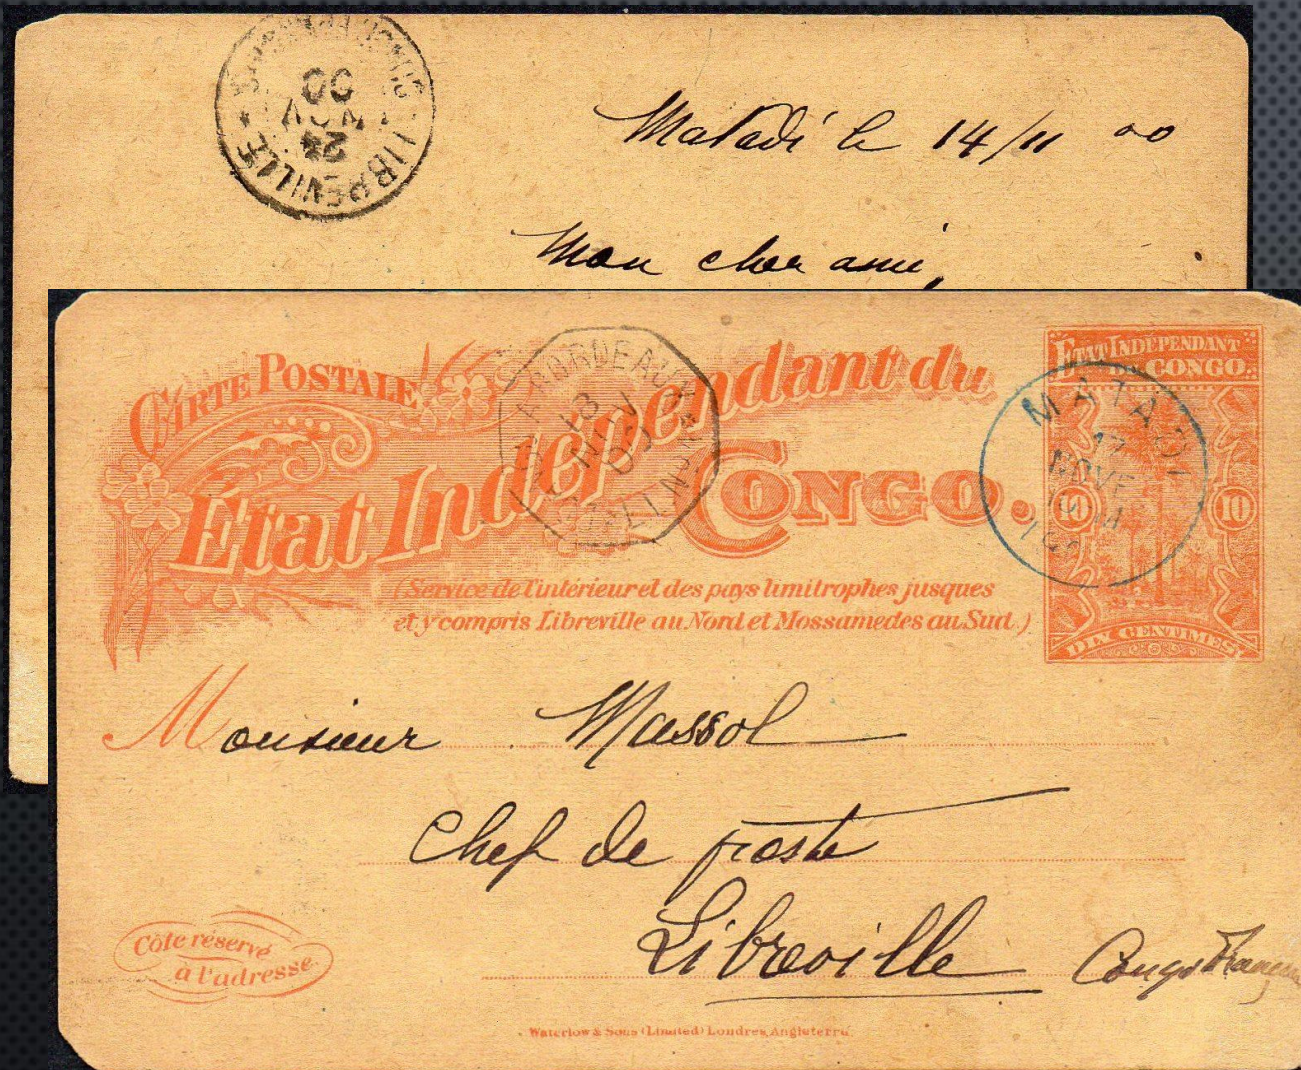 LIBREVILLE
24
NOV
00
Matadi le 14/11 00
Mon cher ami,
CARTE POSTALE
État Indépendant du
CONGO.
(Service de l'intérieur et des pays limitrophes jusques
et y compris Libreville au Nord et Mossamedes au Sud.)
BORDEAUX
18
NOV
00
ETAT INDEPENDANT
CONGO.
10 10
DIX CENTIMES
MATADI
17
NOVE
Monsieur Massol
Chef de poste
Libreville Congo Français
Côté réservé
à l'adresse
Waterlow & Sons (Limited) Londres, Angleterre